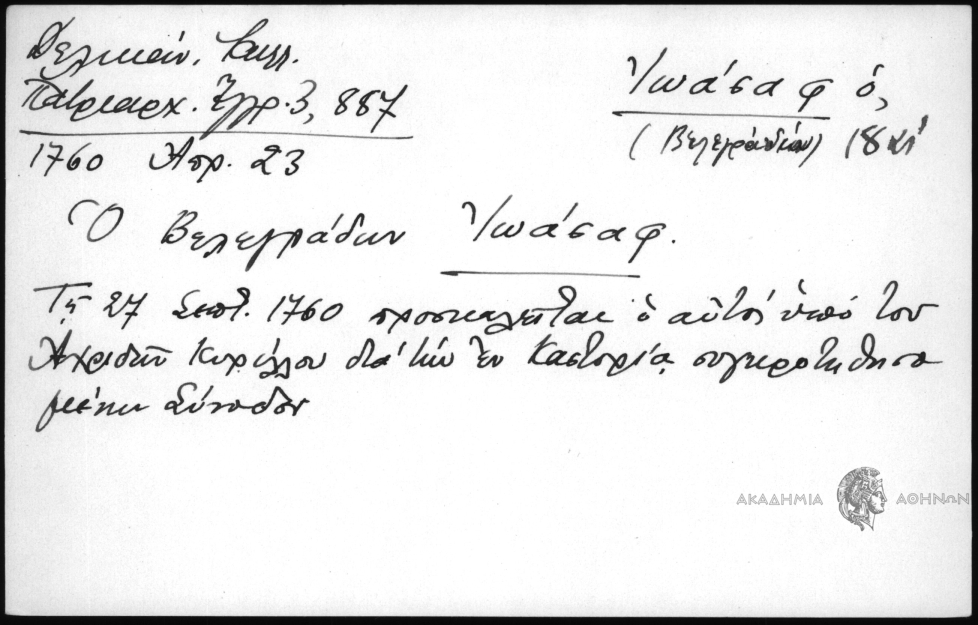 Δελικάν. Καλλ.
Πατριαρχ. Ἔγγρ. 3, 887
1760 Ἀπρ. 23
Ἰωάσαφ ὁ,
(Βελεγράδων) 18
Ὁ Βελεγράδων Ἰωάσαφ.
Τῇ 27 Σεπτ. 1760 προσκαλεῖται ὁ αὐτός ὑπό του
Ἀχριδῶν Κυρίλλου διά τήν ἐν Καστορίᾳ συγκροτηθησο
μένην Σύνοδον
ΑΚΑΔΗΜΙΑ ΑΘΗΝΩΝ